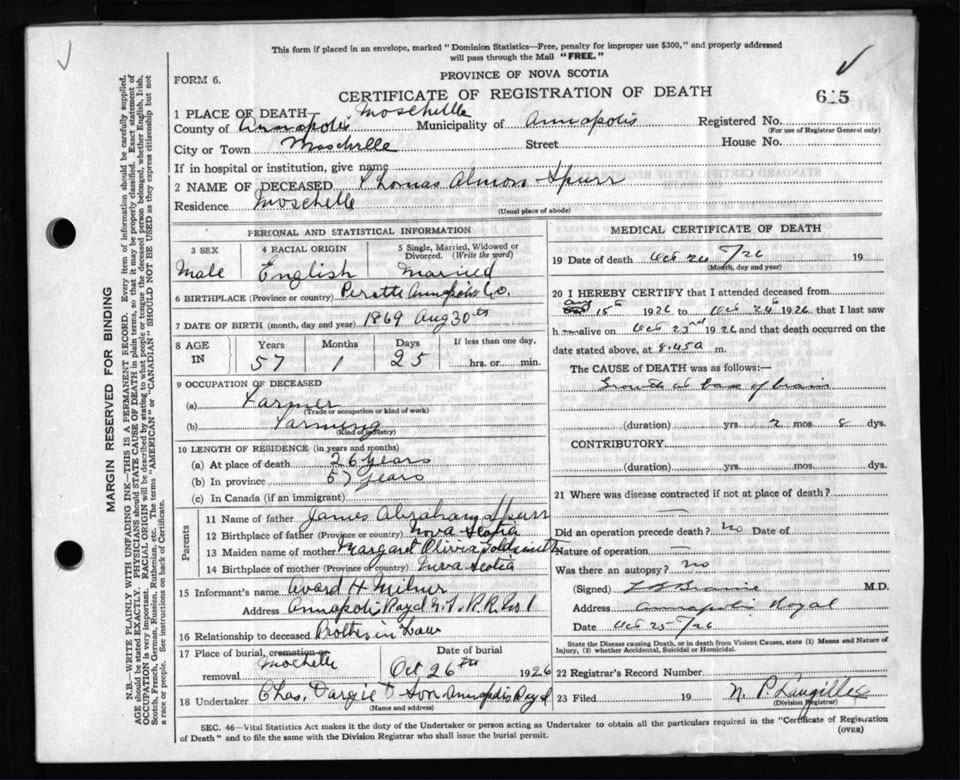 This form if placed in an envelope, marked "Dominion Statistics—Free, penalty for improper use $300," and properly addressed
will pass through the Mail "FREE."
FORM 6.
PROVINCE OF NOVA SCOTIA
CERTIFICATE OF REGISTRATION OF DEATH
615
1 PLACE OF DEATH Moschelle
County of Annapolis Municipality of Annapolis Registered No.
(For use of Registrar General only)
City or Town Moschelle Street House No.
If in hospital or institution, give name
2 NAME OF DECEASED Thomas Almon Spurr
Residence Moschelle
(Usual place of abode)
PERSONAL AND STATISTICAL INFORMATION
3 SEX 4 RACIAL ORIGIN 5 Single, Married, Widowed or Divorced. (Write the word)
Male English Married
6 BIRTHPLACE (Province or country) Perotte Annapolis Co.
7 DATE OF BIRTH (month, day and year) 1869 Aug 30th
8 AGE IN Years Months Days If less than one day,
57 1 25 hrs. or min.
9 OCCUPATION OF DECEASED
(a) Farmer
(Trade or occupation or kind of work)
(b) Farming
(Kind of industry)
10 LENGTH OF RESIDENCE (in years and months)
(a) At place of death 26 years
(b) In province 57 years
(c) In Canada (if an immigrant)
Parents
11 Name of father James Abraham Spurr
12 Birthplace of father (Province or country) Nova Scotia
13 Maiden name of mother Margaret Olivia Goldsmith
14 Birthplace of mother (Province or country) Nova Scotia
15 Informant's name Avard H. Milner
Address Annapolis Royal R.R. No 1
16 Relationship to deceased Brother in Law
17 Place of burial, cremation or removal Date of burial
Mochelle Oct 26th 1926
18 Undertaker Chas. Dargie & Son Annapolis Royal
(Name and address)
MEDICAL CERTIFICATE OF DEATH
19 Date of death Oct 24/26 19
(Month, day and year)
20 I HEREBY CERTIFY that I attended deceased from
Aug 15th 1926 to Oct 24th 1926, that I last saw
h alive on Oct 23rd 1926 and that death occurred on the
date stated above, at 8.45a m.
The CAUSE of DEATH was as follows:—
Growth at base of brain
(duration) yrs. 2 mos. 8 dys.
CONTRIBUTORY
(duration) yrs. mos. dys.
21 Where was disease contracted if not at place of death?
Did an operation precede death? no Date of
Nature of operation —
Was there an autopsy? no
(Signed) M.D.
Address Annapolis Royal
Date Oct 25/26
State the Disease causing Death, or in death from Violent Causes, state (1) Means and Nature of Injury, (2) whether Accidental, Suicidal or Homicidal.
22 Registrar's Record Number
23 Filed 19 N. P. Langille
(Division Registrar)
SEC. 46—Vital Statistics Act makes it the duty of the Undertaker or person acting as Undertaker to obtain all the particulars required in the "Certificate of Registration
of Death" and to file the same with the Division Registrar who shall issue the burial permit.
(OVER)
MARGIN RESERVED FOR BINDING
N.B.—WRITE PLAINLY WITH UNFADING INK—THIS IS A PERMANENT RECORD. Every item of information should be carefully supplied.
AGE should be stated EXACTLY. PHYSICIANS should STATE CAUSE OF DEATH in plain terms, so that it may be properly classified. Exact statement of
OCCUPATION is very important. RACIAL ORIGIN will be described by stating to what people or tongue the deceased person belonged, whether English, Irish,
Scotch, French, German, Russian, Ruthenian, etc. The terms "AMERICAN" or "CANADIAN" SHOULD NOT BE USED as they express citizenship but not
a race or people. See instructions on back of Certificate.